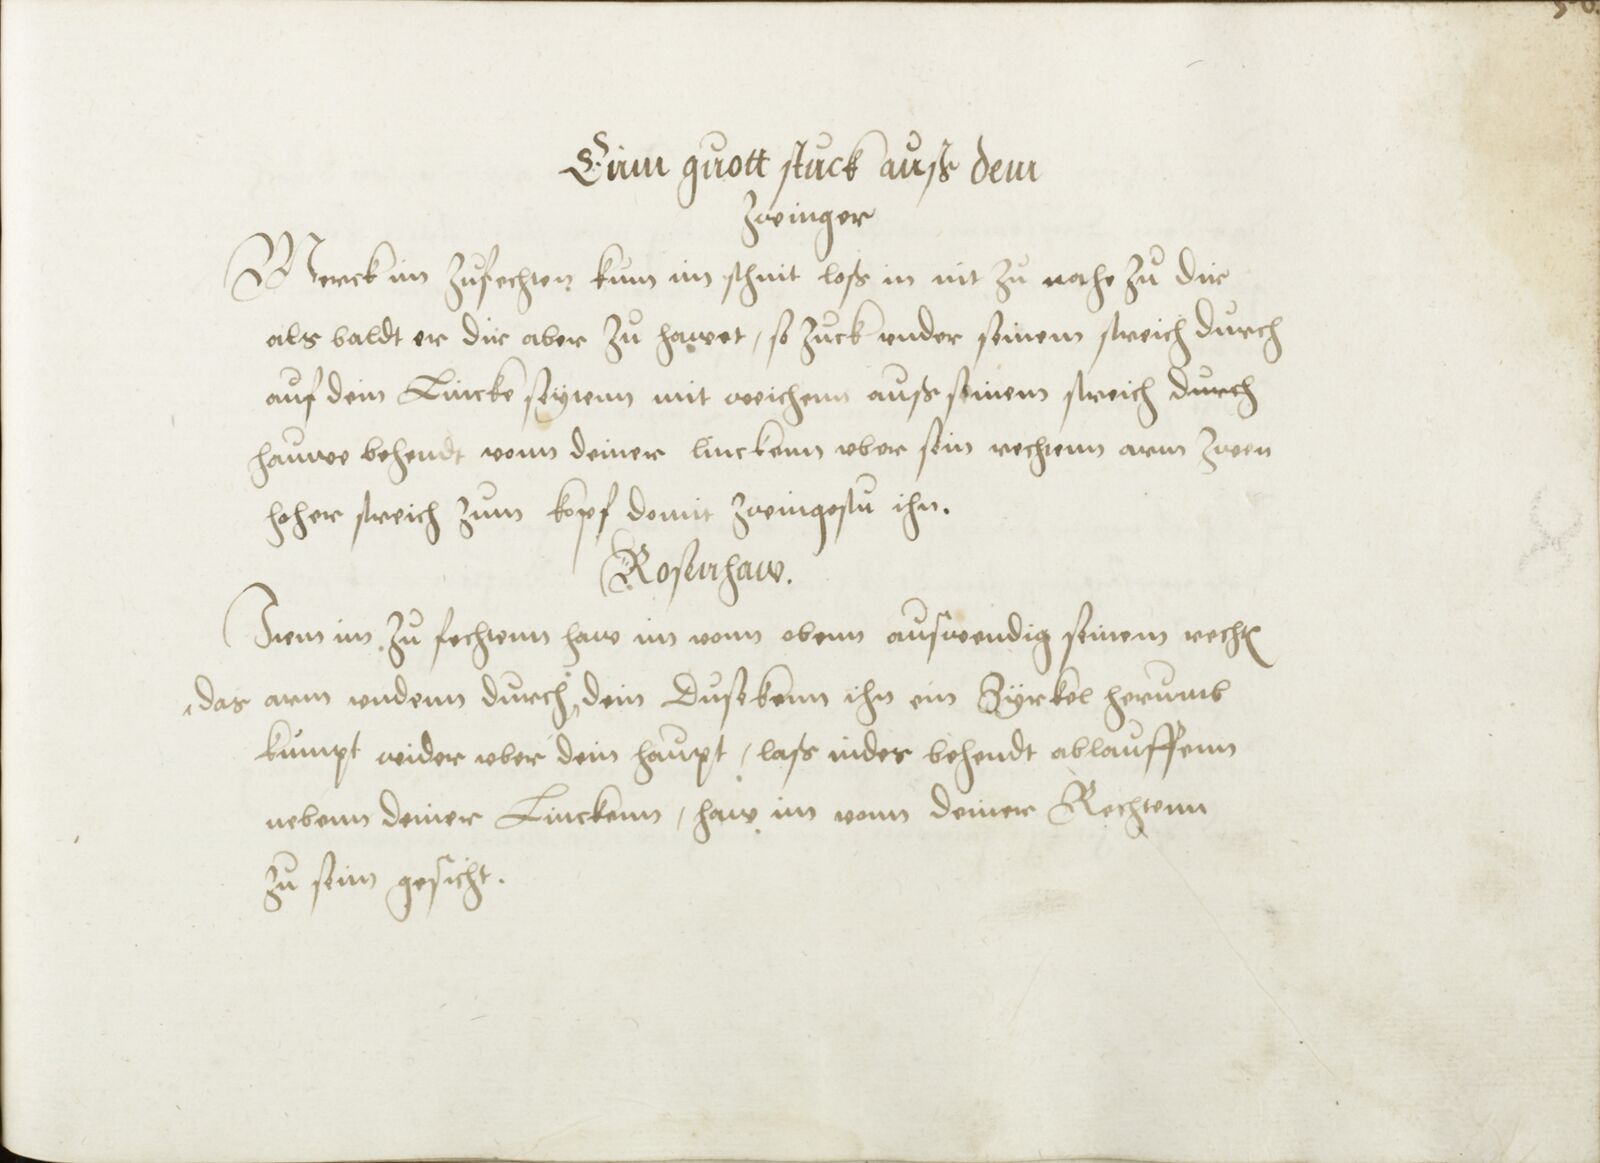 Einn guott stuck auß dem
Zwinger
Merck im Zufechten kum im schnit loß in nit zu nahe zu dir
als baldt er dir aber zu hawet / so Zuck vnder seinem streich durch
auf dein Lincke seytenn mit weichenn auß seinem streich durch
hauwe behendt vonn deiner linckenn vber sein rechtenn arm zwen
hoher streich zum kopf domit zwingestu ihn.
Rosenhaw.
Item im zu fechtenn haw im vonn obenn auswendig seinem recht
das arm vndenn durch dein Dusekenn ihn ein Zyrkel herumb
kumpt wider vber dein haupt / laß indes behendt ablauffenn
nebenn deiner Linckenn / haw im vonn deiner Rechtenn
zu seim gesicht.